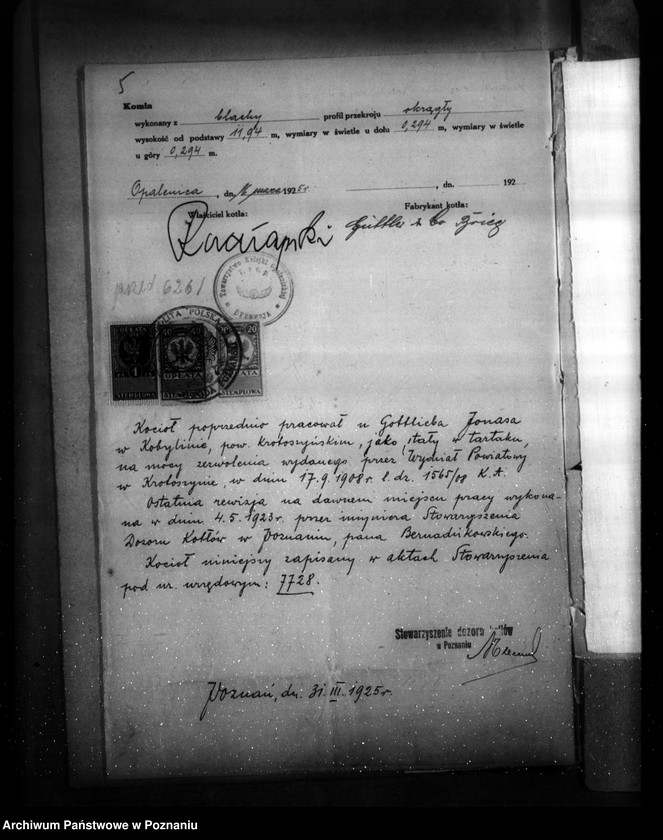 5
Komin
wykonany z blachy profil przekroju okrągły
wysokość od podstawy 11,94 m, wymiary w świetle u dołu 0,294 m, wymiary w świetle
u góry 0,294 m.
Opalenica, dn. 16 marca 1925 r. , dn. 192
Właściciel kotła: Fabrykant kotła:
6261
OPŁATA
STEMPLOWA
Kocioł poprzednio pracował u Gottlieba Jonasa
w Kobylinie, pow. krotoszyńskim, jako stały w tartaku,
na mocy zezwolenia wydanego przez Wydział Powiatowy
w Krotoszynie, w dniu 17.9.1908 r. l. dz. 1565/08 K.A.
Ostatnia rewizja na dawnem miejscu pracy wykona-
na w dniu 4.5.1923 r. przez inżyniera Stowarzyszenia
Dozoru Kotłów w Poznaniu, pana Bernadzikowskiego.
Kocioł niniejszy zapisany w aktach Stowarzyszenia
pod nr. urzędowym: 7728.
Stowarzyszenie dozoru kotłów
w Poznaniu
Poznań, dn. 31.III.1925 r.
Archiwum Państwowe w Poznaniu